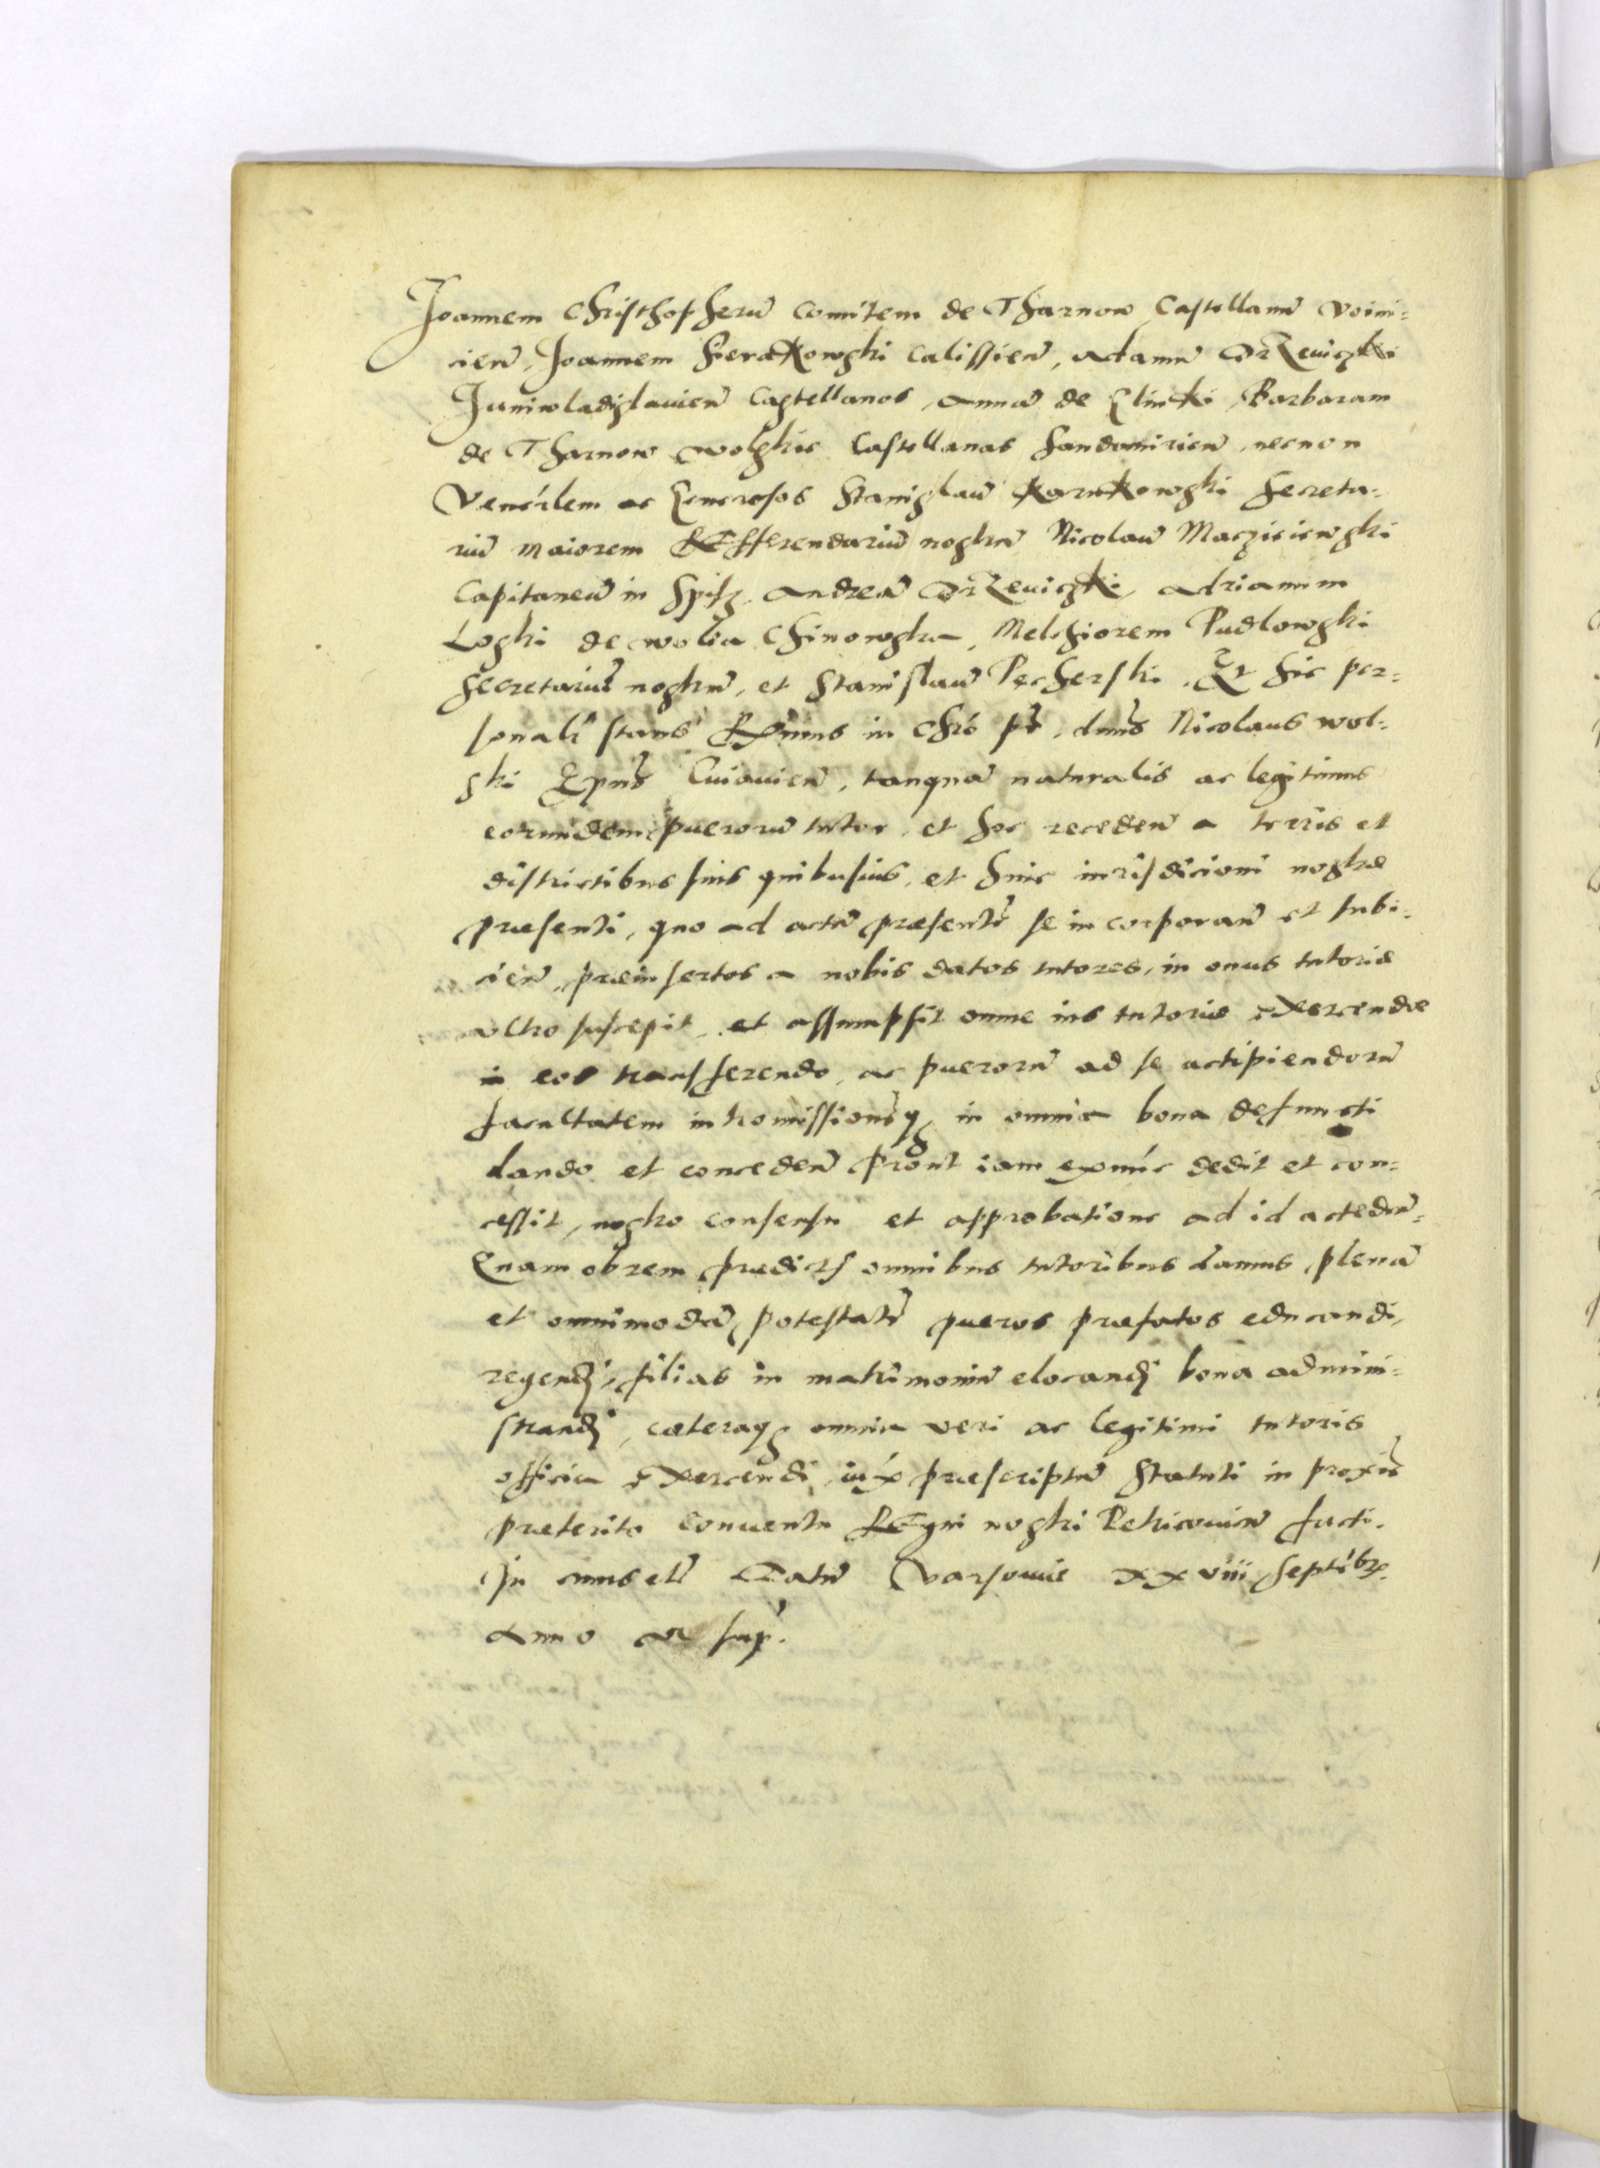 Joannem Christhopherū Comitem de Tharnow Castellanū Voini=
cien̄, Joannem Sierakowski Calissien̄, Adamū Drzeuiczki
Juniwladislauien̄ Castellanos, Annā de Barbaram
de Tharnow Wolskie Castellanas Sandomirien̄, necnon
Venerlem ac Generosos Stanislaū Karnkowski Secreta=
riū Maiorem Refferendariū nostrū Nicolaū Maczieiewski
Capitaneū in Spisz, Andreā Drzeuiczki, Adrianum
Loski de Wolia Chinowska, Melchiorem Pudlowski
Secretariū nostrū, et Stanislaū Pecherski. Et hic per=
sonalr̄ stans Rx̄mus in Chrō pr̄, dnūs Nicolaus Wol=
ski Epūs Cuiauien̄, tanquā naturalis ac legitimus
eorundem puerorū tutor, et hoc receden̄ a terris et
districtibus suis quibusuis, et huic iurisdicioni nostræ
præsenti, quo ad actū præsentē se incorporan̄ et subi=
cien̄, præinsertos a nobis datos tutores, in onus tutoriæ
ultro suscepit, et assumpsit omne ius tutoriæ exercendæ
in eos transferendo, ac puerorū ad se accipiendorū
facultatem intromissionēq; in omnia bona defuncti
dando et conceden̄ Prout iam exnūc dedit et con=
cessit, nostro consensu et approbatione ad id acceden̄=
Quam obrem prædictis omnibus tutoribus damus plenā
et omnimodā potestatē pueros præfatos educandi,
regendi, filias in matrimoniū elocandi bona admini=
strandi, cæteraq; omnia veri ac legitimi tutoris
officia exercendi, iux̄ præscriptū Statuti in proxiē
præterito Conuentu Regni nostri Petricouien̄ facti.
In cuius etc̄ Datū Varsouiæ xxviii Septēbr.
Anno vt supr̄.